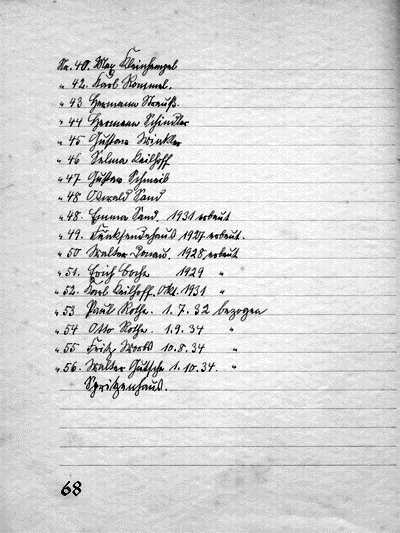 Nr. 40. Max Kleinhempel
" 42. Karl Rommel.
" 43 Hermann Strauß.
" 44 Hermann Schindler
" 45 Gustav Winkler
" 46 Selma Keilhoff
" 47 Gustav Schmeil
" 48 Oswald Sand
" 48. Emma Sand. 1931 erbaut
" 49. 1927 erbaut.
" 50 Walter Donau. 1928 erbaut
" 51. Erich 1929 "
" 52. Karl Keilhoff. Okt. 1931 "
" 53 Paul Rothe. 1. 7. 32 bezogen
" 54 Otto Rothe. 1. 9. 34 "
" 55 Fritz 10. 8. 34 "
" 56. Walter Gutsche 1. 10. 34. "
Spritzenhaus.
68